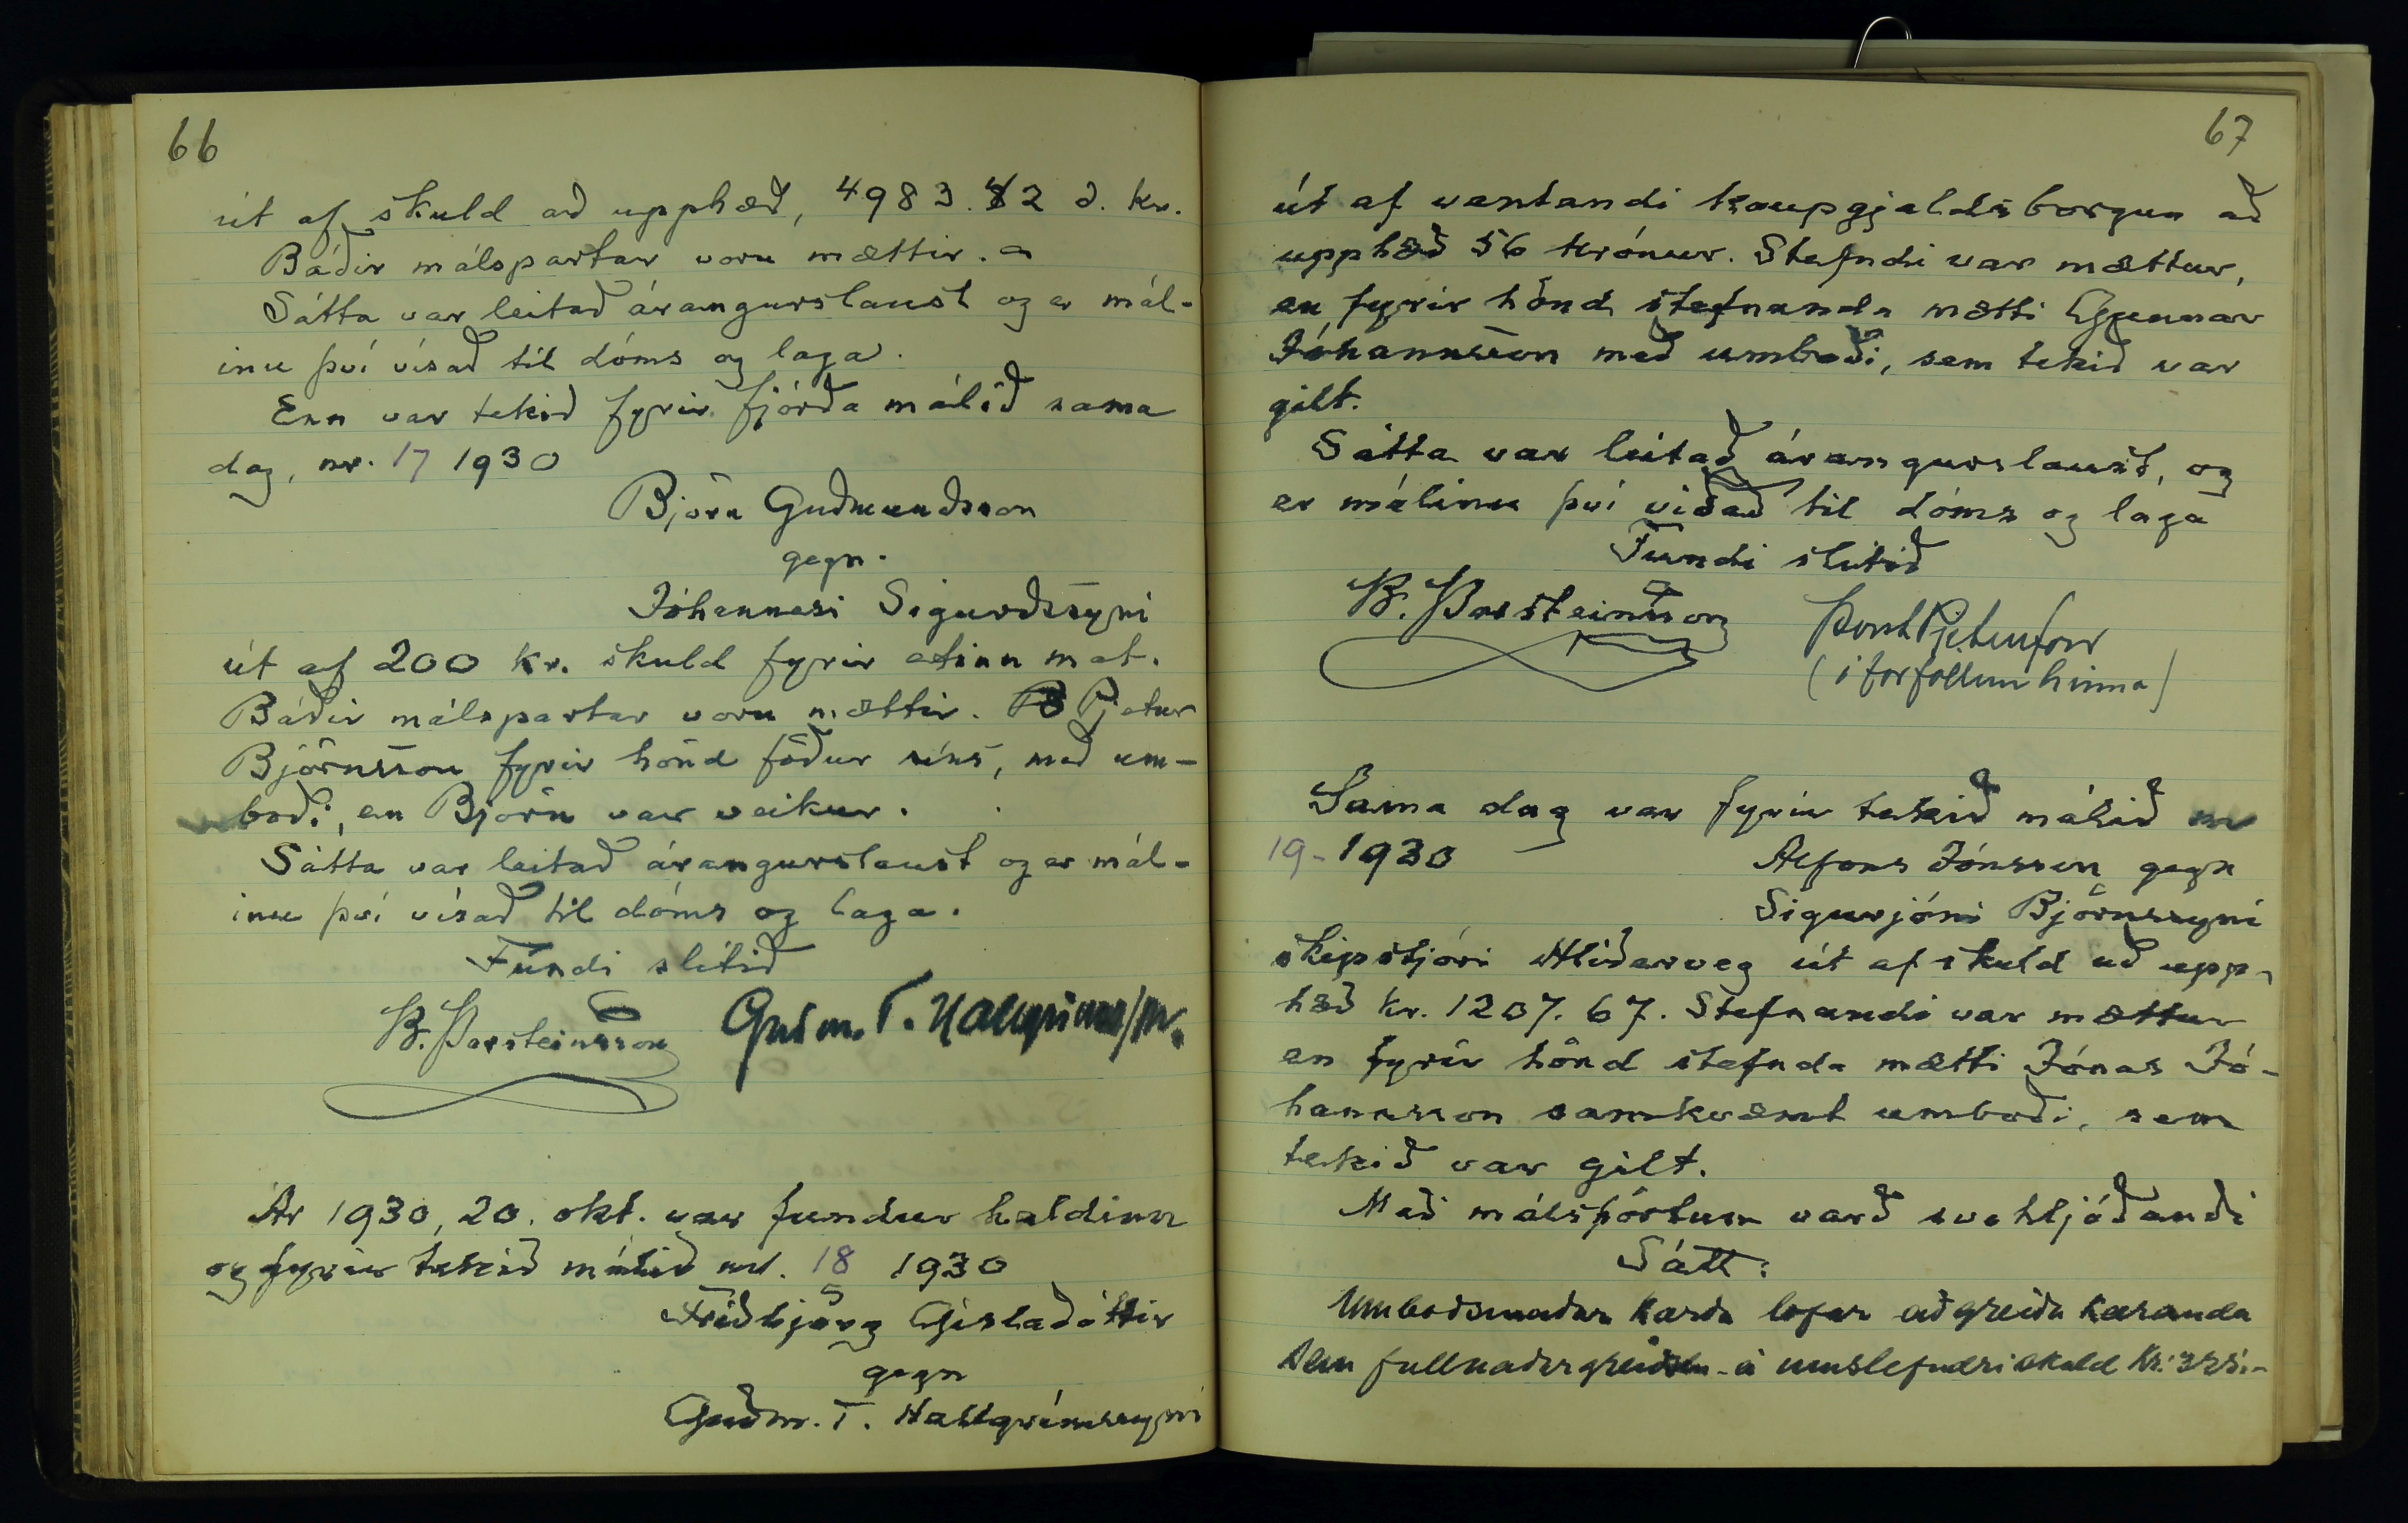 66
út af skuld að upphæð, 4983.42 d. kr.
Báðir málspartar voru mættir.
Sátta var leitað árangurslaust og er mál-
inu því vísað til dóms og laga.
Enn var tekið fyrir fjórða málið sama
dag, nr. 17 1930
Björn Guðmundsson
gegn.
Jóhannesi Sigurðssyni
út af 200 kr. skuld fyrir etinn mat.
Báðir málspartar voru mættir. Pjetur
Björnsson fyrir hönd föður síns, með um-
boði, en Björn var veikur.
Sátta var leitað árangurslaust og er mál-
inu því vísað til dóms og laga.
Fundi slitið
B. Þorsteinsson Guðm. T. Hallgrímss/on.
Ár 1930, 20. okt. var fundur haldinn
og fyrir tekið málið nr. 18 1930
Friðbjörg Gísladóttir
gegn
Guðm. T. Hallgrímssyni
67
út af vantandi kaupgjaldsborgun að
upphæð 56 krónur. Stefndi var mættur,
en fyrir hönd stefnanda mætti Gunnar
Jóhannsson með umboði, sem tekið var
gilt.
Sátta var leitað árangurslaust, og
er málinu því viðað til dóms og laga
Fundi slitið
B. Þorsteinsson Þorst Pjetursson
(í forföllum hinna)
Sama dag var fyrir tekið málið nr
19-1930 Alfons Jónsson gegn
Sigurjóni Björnssyni
skipstjóri Hlíðarveg út af skuld að upp-
hæð kr. 1207.67. Stefnandi var mættur
en fyrir hönd stefnda mætti Jónas Jó-
hannsson samkvæmt umboði, sem
tekið var gilt.
Með málspörtum varð svohljóðandi
Sátt:
Umboðsmaður kærða lofar að greiða kæranda
sem fullnaðargreiðslu á umstefndri skuld kr. 325.-